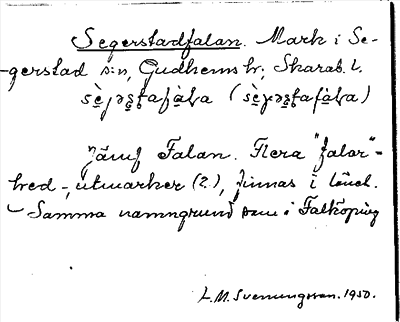 Segerstadfalan. Mark i Se-
gerstad sn, Gudhems hr, Skarab. l.
sè̱jəʂtafàla (sè̱jəʂtafàla)
Jämf Falan. Flera "falor" =
hed -, utmarker (?), finnas i länet.
Samma namngrund som i Falköping
L.M. Svenungsson. 1950.